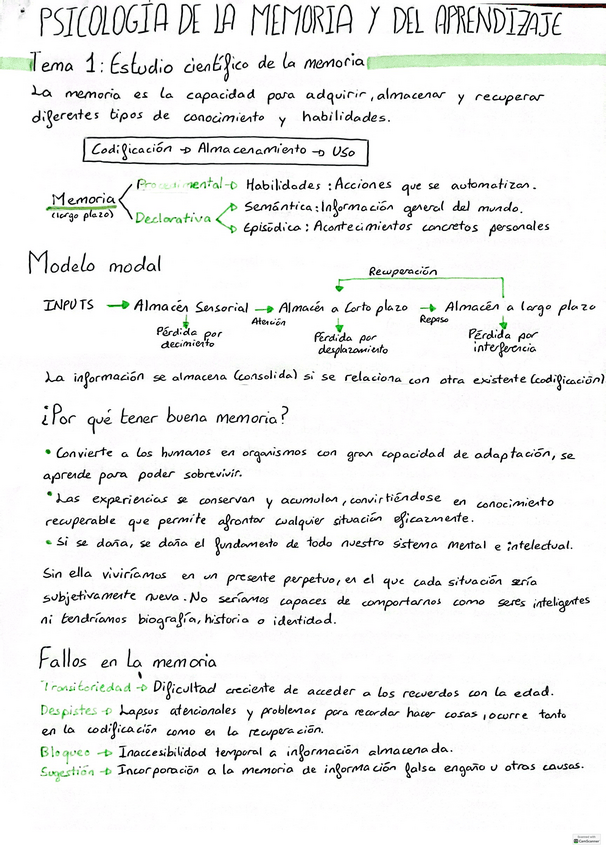 PSICOLOGÍA DE LA MEMORIA Y DEL APRENDIZAJE
Tema 1: Estudio científico de la memoria
La memoria es la capacidad para adquirir, almacenar y recuperar
diferentes tipos de conocimiento y habilidades.
Codificación → Almacenamiento → Uso
Procedimental → Habilidades: Acciones que se automatizan.
Memoria
(largo plazo)
Declarativa
Semántica: Información general del mundo.
Episódica: Acontecimientos concretos personales
Modelo modal
Recuperación
INPUTS → Almacén Sensorial → Almacén a Corto plazo → Almacén a largo plazo
Atención
Repaso
Pérdida por
decimiento
Pérdida por
desplazamiento
Pérdida por
interferencia
La información se almacena (consolida) si se relaciona con otra existente (codificación)
¿Por qué tener buena memoria?
• Convierte a los humanos en organismos con gran capacidad de adaptación, se
aprende para poder sobrevivir.
• Las experiencias se conservan y acumulan, convirtiéndose en conocimiento
recuperable que permite afrontar cualquier situación eficazmente.
• Si se daña, se daña el fundamento de todo nuestro sistema mental e intelectual.
Sin ella viviríamos en un presente perpetuo, en el que cada situación sería
subjetivamente nueva. No seríamos capaces de comportarnos como seres inteligentes
ni tendríamos biografía, historia o identidad.
Fallos en la memoria
Transitoriedad → Dificultad creciente de acceder a los recuerdos con la edad.
Despistes → Lapsus atencionales y problemas para recordar hacer cosas, ocurre tanto
en la codificación como en la recuperación.
Bloqueo → Inaccesibilidad temporal a información almacenada.
Sugestión → Incorporación a la memoria de información falsa engaño u otras causas.
CamScanner